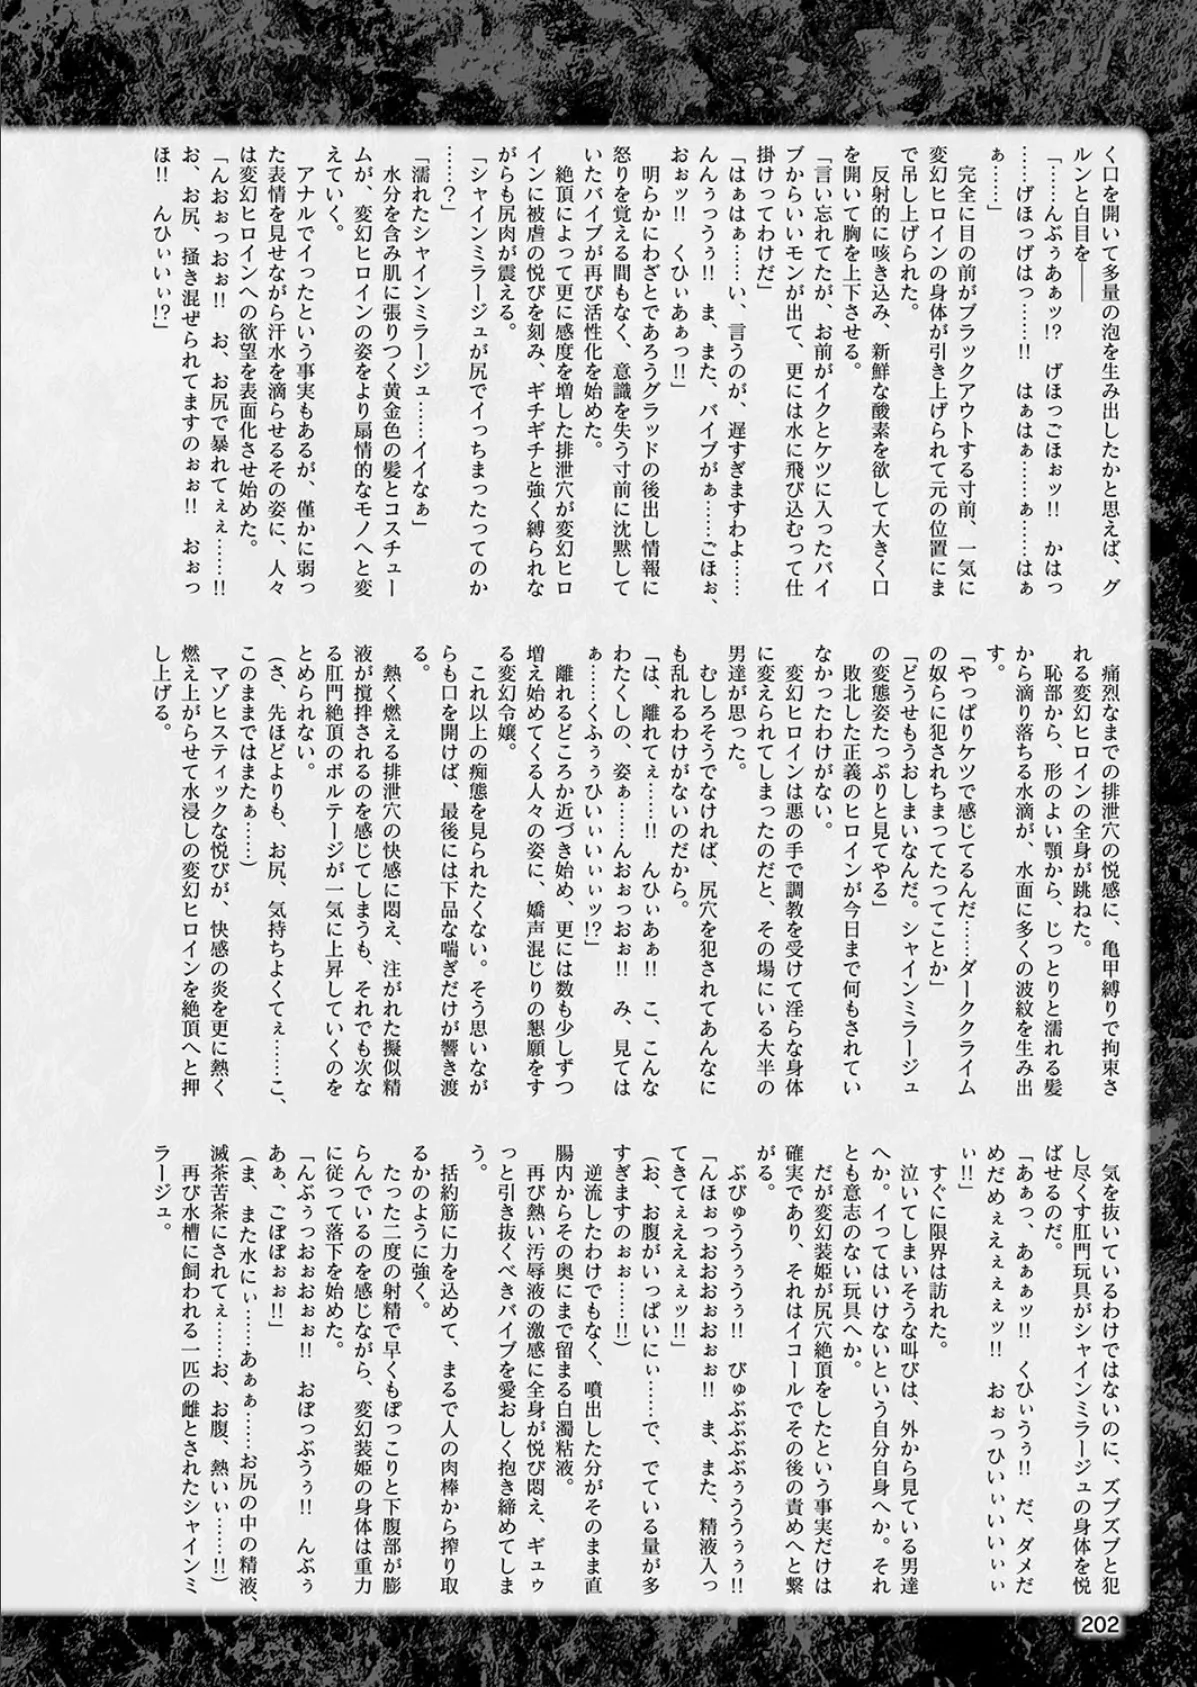 く口を開いて多量の泡を生み出したかと思えば、グ
ルンと白目を――
「……んぶぅあぁッ!?　げほっごほぉッ!!　かはっ
……げほっげはっ……!!　はぁはぁ……ぁ……はぁ
ぁ……」
　完全に目の前がブラックアウトする寸前、一気に
変幻ヒロインの身体が引き上げられて元の位置にま
で吊し上げられた。
　反射的に咳き込み、新鮮な酸素を欲して大きく口
を開いて胸を上下させる。
「言い忘れてたが、お前がイクとケツに入ったバイ
ブからいいモンが出て、更には水に飛び込むって仕
掛けってわけだ」
「はぁはぁ……い、言うのが、遅すぎますわよ……
んんぅっうぅ!!　ま、また、バイブがぁ……ごほぉ、
おぉッ!!　くひぃあぁっ!!」
　明らかにわざとであろうグラッドの後出し情報に
怒りを覚える間もなく、意識を失う寸前に沈黙して
いたバイブが再び活性化を始めた。
　絶頂によって更に感度を増した排泄穴が変幻ヒロ
インに被虐の悦びを刻み、ギチギチと強く縛られな
がらも尻肉が震える。
「シャインミラージュが尻でイっちまったってのか
……?」
「濡れたシャインミラージュ……イイなぁ」
　水分を含み肌に張りつく黄金色の髪とコスチュー
ムが、変幻ヒロインの姿をより扇情的なモノへと変
えていく。
　アナルでイったという事実もあるが、僅かに弱っ
た表情を見せながら汗水を滴らせるその姿に、人々
は変幻ヒロインへの欲望を表面化させ始めた。
「んおぉっおぉ!!　お、お尻で暴れてぇぇ……!!
お、お尻、掻き混ぜられてますのぉぉ!!　おぉっ
ほ!!　んひぃいぃ!?」
　痛烈なまでの排泄穴の悦感に、亀甲縛りで拘束さ
れる変幻ヒロインの全身が跳ねた。
　恥部から、形のよい顎から、じっとりと濡れる髪
から滴り落ちる水滴が、水面に多くの波紋を生み出
す。
「やっぱりケツで感じてるんだ……ダーククライム
の奴らに犯されちまってたってことか」
「どうせもうおしまいなんだ。シャインミラージュ
の変態姿たっぷりと見てやる」
　敗北した正義のヒロインが今日まで何もされてい
なかったわけがない。
　変幻ヒロインは悪の手で調教を受けて淫らな身体
に変えられてしまったのだと、その場にいる大半の
男達が思った。
　むしろそうでなければ、尻穴を犯されてあんなに
も乱れるわけがないのだから。
「は、離れてぇ……!!　んひぃあぁ!!　こ、こんな
わたくしの、姿ぁ……んおぉっおぉ!!　み、見ては
ぁ……くふぅぅひぃいぃいぃッ!?」
　離れるどころか近づき始め、更には数も少しずつ
増え始めてくる人々の姿に、嬌声混じりの懇願をす
る変幻令嬢。
　これ以上の痴態を見られたくない。そう思いなが
らも口を開けば、最後には下品な喘ぎだけが響き渡
る。
　熱く燃える排泄穴の快感に悶え、注がれた擬似精
液が撹拌されるのを感じてしまうも、それでも次な
る肛門絶頂のボルテージが一気に上昇していくのを
とめられない。
（さ、先ほどよりも、お尻、気持ちよくてぇ……こ、
このままではまたぁ……）
　マゾヒスティックな悦びが、快感の炎を更に熱く
燃え上がらせて水浸しの変幻ヒロインを絶頂へと押
し上げる。
　気を抜いているわけではないのに、ズブズブと犯
し尽くす肛門玩具がシャインミラージュの身体を悦
ばせるのだ。
「あぁっ、あぁぁッ!!　くひぃうぅ!!　だ、ダメだ
めだめぇえぇぇぇッ!!　おぉっひいぃいいいぃぃ
ぃ!!」
　すぐに限界は訪れた。
　泣いてしまいそうな叫びは、外から見ている男達
へか。イってはいけないという自分自身へか。それ
とも意志のない玩具へか。
　だが変幻装姫が尻穴絶頂をしたという事実だけは
確実であり、それはイコールでその後の責めへと繋
がる。
　ぶぴゅううぅぅうぅ!!　びゅぶぶぶぶぅううぅぅ!!
「んほぉっおおおぉおぉぉ!!　ま、また、精液入っ
てきてぇええぇぇッ!!」
（お、お腹がいっぱいにぃ……で、でている量が多
すぎますのぉぉ……!!）
　逆流したわけでもなく、噴出した分がそのまま直
腸内からその奥にまで留まる白濁粘液。
　再び熱い汚辱液の激感に全身が悦び悶え、ギュゥ
っと引き抜くべきバイブを愛おしく抱き締めてしま
う。
　括約筋に力を込めて、まるで人の肉棒から搾り取
るかのように強く。
　たった二度の射精で早くもぽっこりと下腹部が膨
らんでいるのを感じながら、変幻装姫の身体は重力
に従って落下を始めた。
「んぶぅっおぉおぉぉ!!　おぼっぶうぅ!!　んぶぅ
あぁ、ごぽぽぉぉ!!」
（ま、また水にぃ……あぁぁ……お尻の中の精液、
滅茶苦茶にされてぇ……お、お腹、熱いぃ……!!）
　再び水槽に飼われる一匹の雌とされたシャインミ
ラージュ。
202